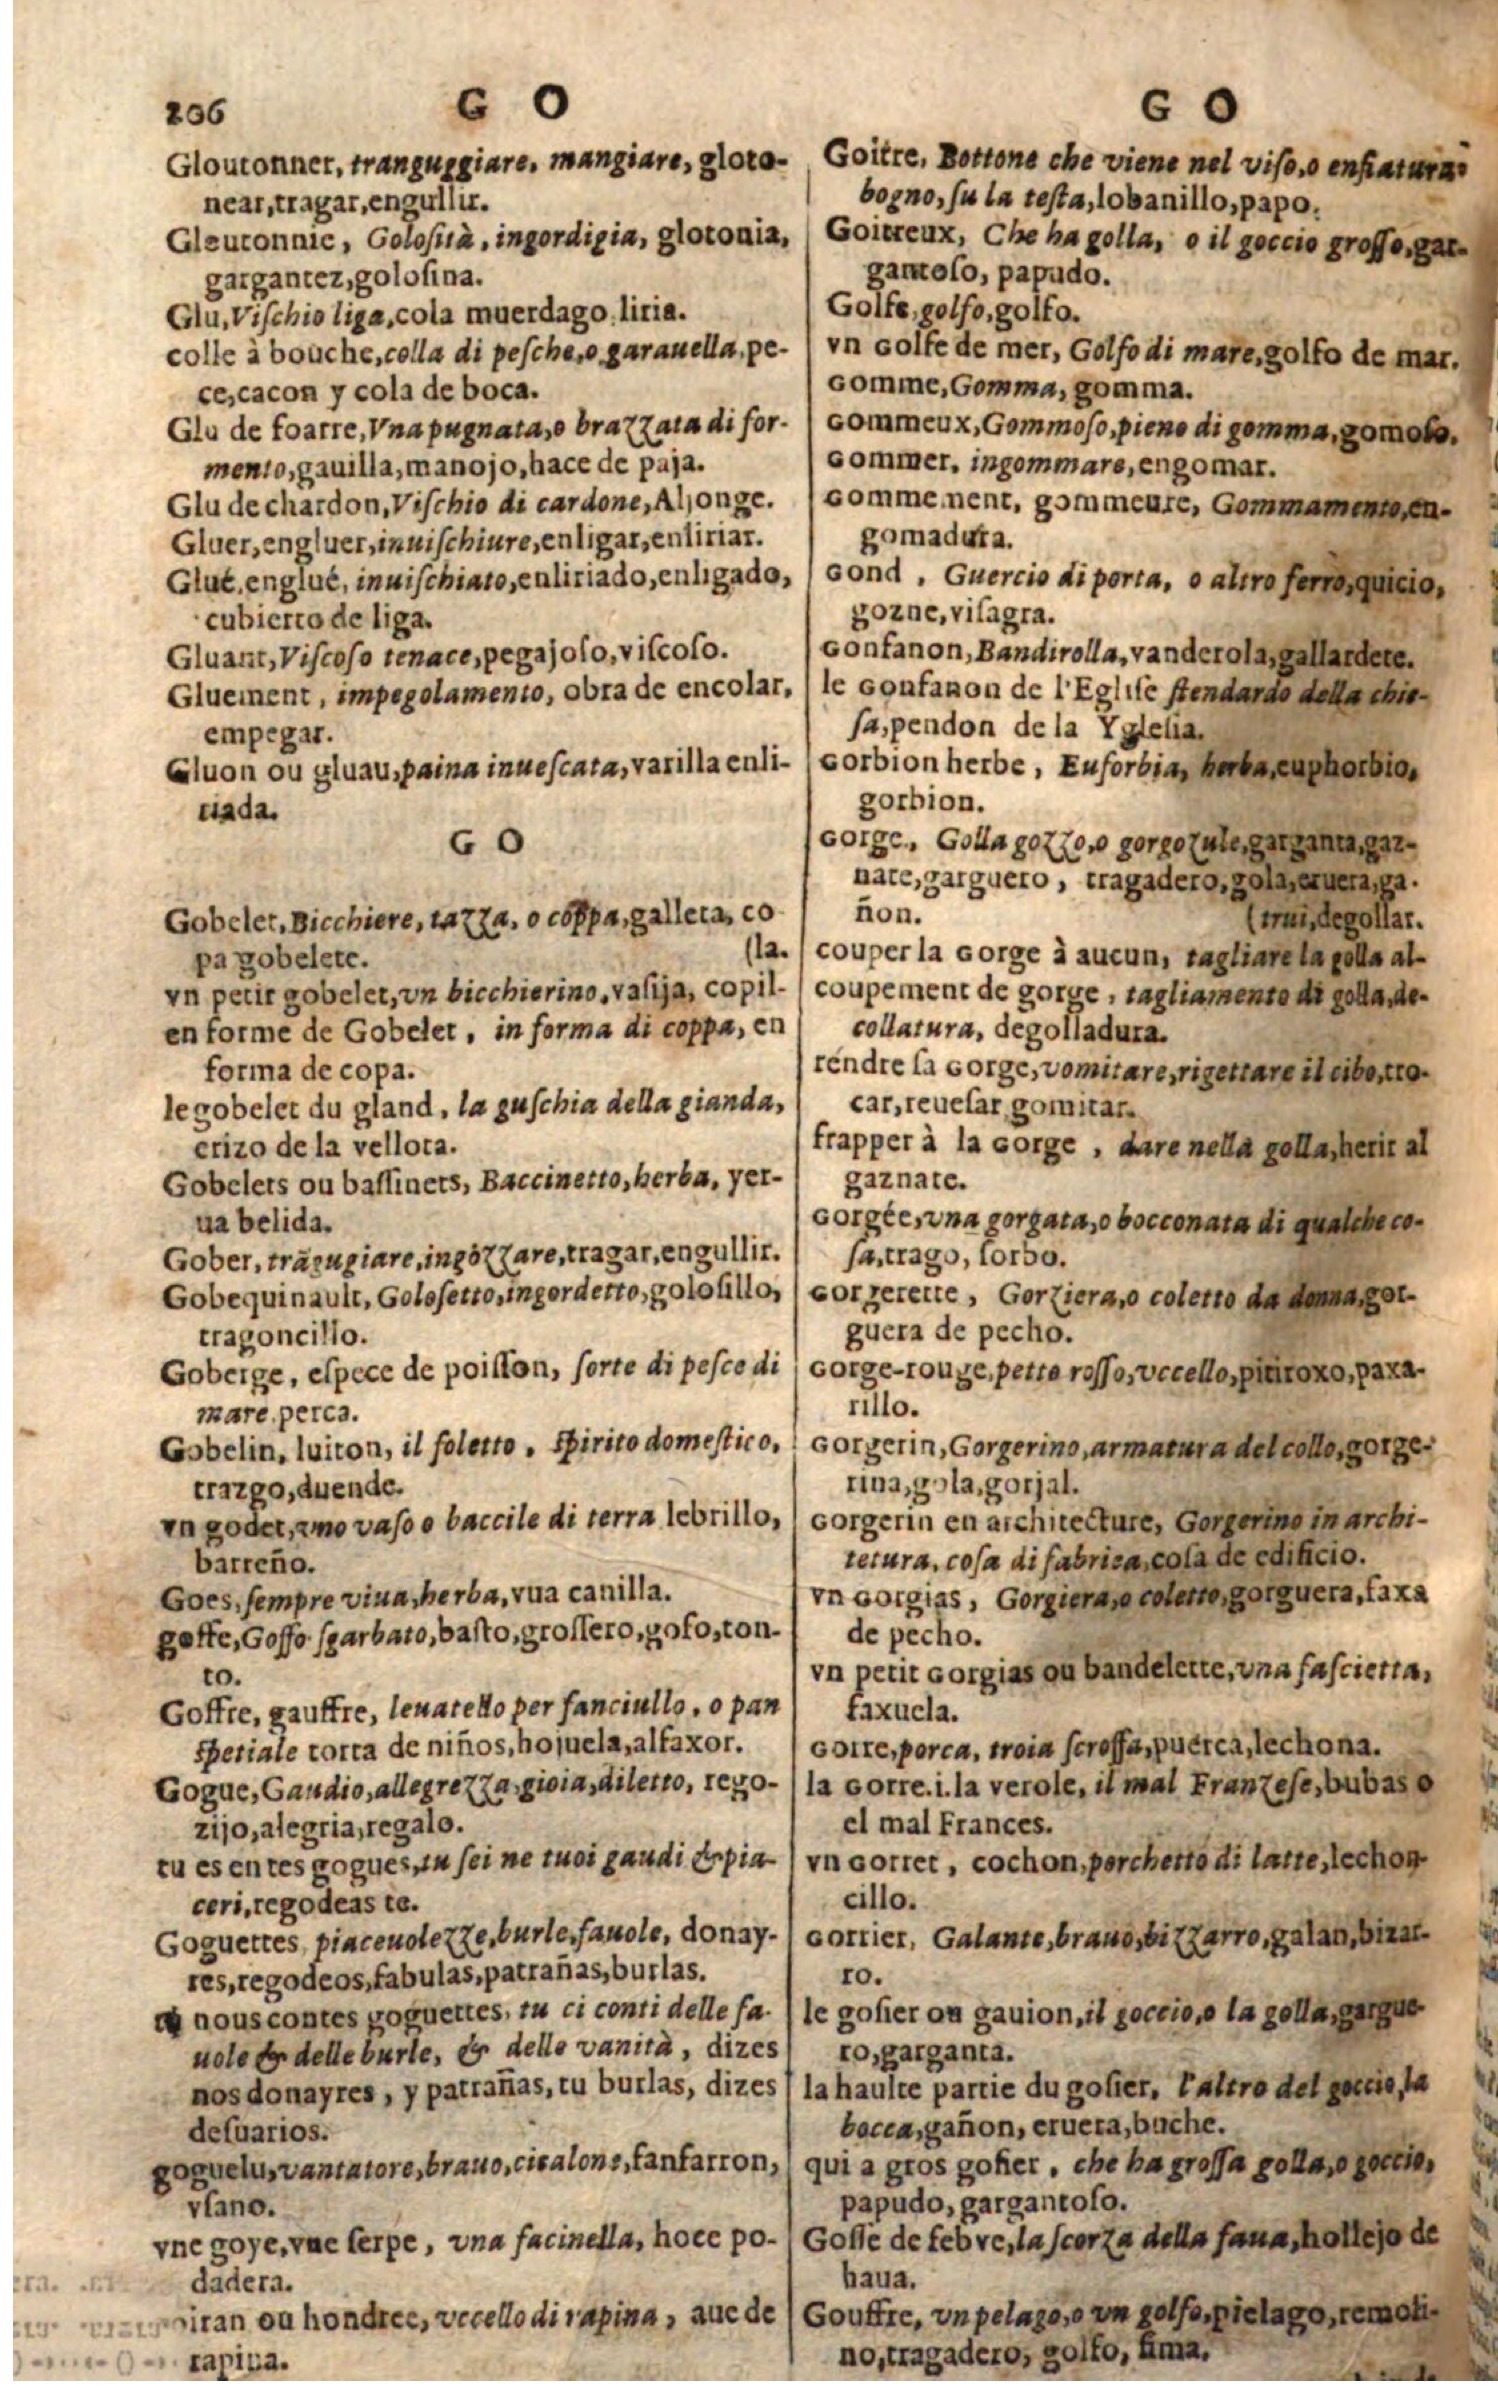 206 G O
Gloutonner, tranguggiare, mangiare, gloto-
near,tragar,engullir.
Gloutonnie, Golosità, ingordigia, glotonia,
gargantez,golosina.
Glu,Vischio liga,cola muerdago liria.
colle à bouche,colla di pesche,o garauella,pe-
ce,cacon y cola de boca.
Glu de foarre,Vna pugnata,o brazzata di for-
mento,gauilla,manojo,hace de paja.
Glu de chardon,Vischio di cardone,Aljonge.
Gluer,engluer,inuischiure,enligar,enliriar.
Glué,englué, inuischiato,enliriado,enligado,
cubierto de liga.
Gluant,Viscoso tenace,pegajoso,viscoso.
Gluement, impegolamento, obra de encolar,
empegar.
Gluon ou gluau,paina inuescata,varilla enli-
riada.
G O
Gobelet,Bicchiere, tazza, o coppa,galleta, co
pa gobelete. (la.
vn petit gobelet,vn bicchierino,vasija, copil-
en forme de Gobelet, in forma di coppa, en
forma de copa.
le gobelet du gland, la guschia della gianda,
erizo de la vellota.
Gobelets ou bassinets, Baccinetto,herba, yer-
ua belida.
Gober, trãgugiare,ingòzzare,tragar,engullir.
Gobequinault, Golosetto,ingordetto,golosillo,
tragoncillo.
Goberge, espece de poisson, sorte di pesce di
mare perca.
Gobelin, luiton, il foletto, spirito domestico,
trazgo,duende.
vn godet,vno vaso o baccile di terra lebrillo,
barreño.
Goes,sempre viua,herba,vua canilla.
goffe,Goffo sgarbato,basto,grossero,gofo,ton-
to.
Goffre, gauffre, leuatello per fanciullo, o pan
spetiale torta de niños,hojuela,alfaxor.
Gogue,Gaudio,allegrezza,gioia,diletto, rego-
zijo,alegria,regalo.
tu es en tes gogues,tu sei ne tuoi gaudi & pia-
ceri,regodeas te.
Goguettes, piaceuolezze,burle,fauole, donay-
res,regodeos,fabulas,patrañas,burlas.
tu nous contes goguettes, tu ci conti delle fa-
uole & delle burle, & delle vanità, dizes
nos donayres, y patrañas, tu burlas, dizes
desuarios.
goguelu,vantatore,brauo,cicalone,fanfarron,
vsano.
vne goye,vne serpe, una facinella, hoce po-
dadera.
oiran ou hondree, vccello di rapina, aue de
rapina.
G O
Goitre, Bottone che viene nel viso,o enfiatura
bogno,su la testa,lobanillo,papo.
Goitreux, Che ha golla, o il goccio grosso,gar-
gantoso, papudo.
Golfe,golfo,golfo.
vn Golfe de mer, Golfo di mare,golfo de mar.
Gomme,Gomma, gomma.
Gommeux,Gommoso,pieno di gomma,gomoso.
Gommer, ingommare,engomar.
Gommement, gommeure, Gommamento,en-
gomadura.
Gond, Guercio di porta, o altro ferro,quicio,
gozne,visagra.
Gonfanon,Bandirolla,vanderola,gallardete.
le Gonfanon de l'Eglise stendardo della chie-
sa,pendon de la Yglesia.
Gorbion herbe, Euforbia, herba,euphorbio,
gorbion.
Gorge, Golla gozzo,o gorgozule,garganta,gaz-
nate,garguero, tragadero,gola,eruera,ga-
ñon. (trui,degollar.
couper la Gorge à aucun, tagliare la golla al-
coupement de gorge, tagliamento di golla,de-
collatura, degolladura.
rendre sa Gorge,vomitare,rigettare il cibo,tro-
car,reuesar gomitar.
frapper à la Gorge, dare nella golla,herir al
gaznate.
Gorgée,vna gorgata,o bocconata di qualche co-
sa,trago, sorbo.
Gorgerette, Gorziera,o coletto da donna,gor-
guera de pecho.
Gorge-rouge,petto rosso,vccello,pitiroxo,paxa-
rillo.
Gorgerin,Gorgerino,armatura del collo,gorge-
rina,gola,gorjal.
Gorgerin en architecture, Gorgerino in archi-
tetura, cosa di fabrica,cosa de edificio.
vn Gorgias, Gorgiera,o coletto,gorguera,faxa
de pecho.
vn petit Gorgias ou bandelette,vna fascietta,
faxuela.
Gorre,porca, troia scroffa,puerca,lechona.
la Gorre.i.la verole, il mal Franzese,bubas o
el mal Frances.
vn Gorret, cochon,porchetto di latte,lechon-
cillo.
Gorrier, Galante,brauo,bizzarro,galan,bizar-
ro.
le gosier ou gauion,il goccio,o la golla,gargue-
ro,garganta.
la haulte partie du gosier, l'altro del goccio,la
bocca,gañon, eruera,buche.
qui a gros gosier, che ha grossa golla,o goccio,
papudo,gargantoso.
Gosse de febve,la scorza della faua,hollejo de
haua.
Gouffre, vn pelago,o vn golfo,pielago,remoli-
no,tragadero, golfo, sima.